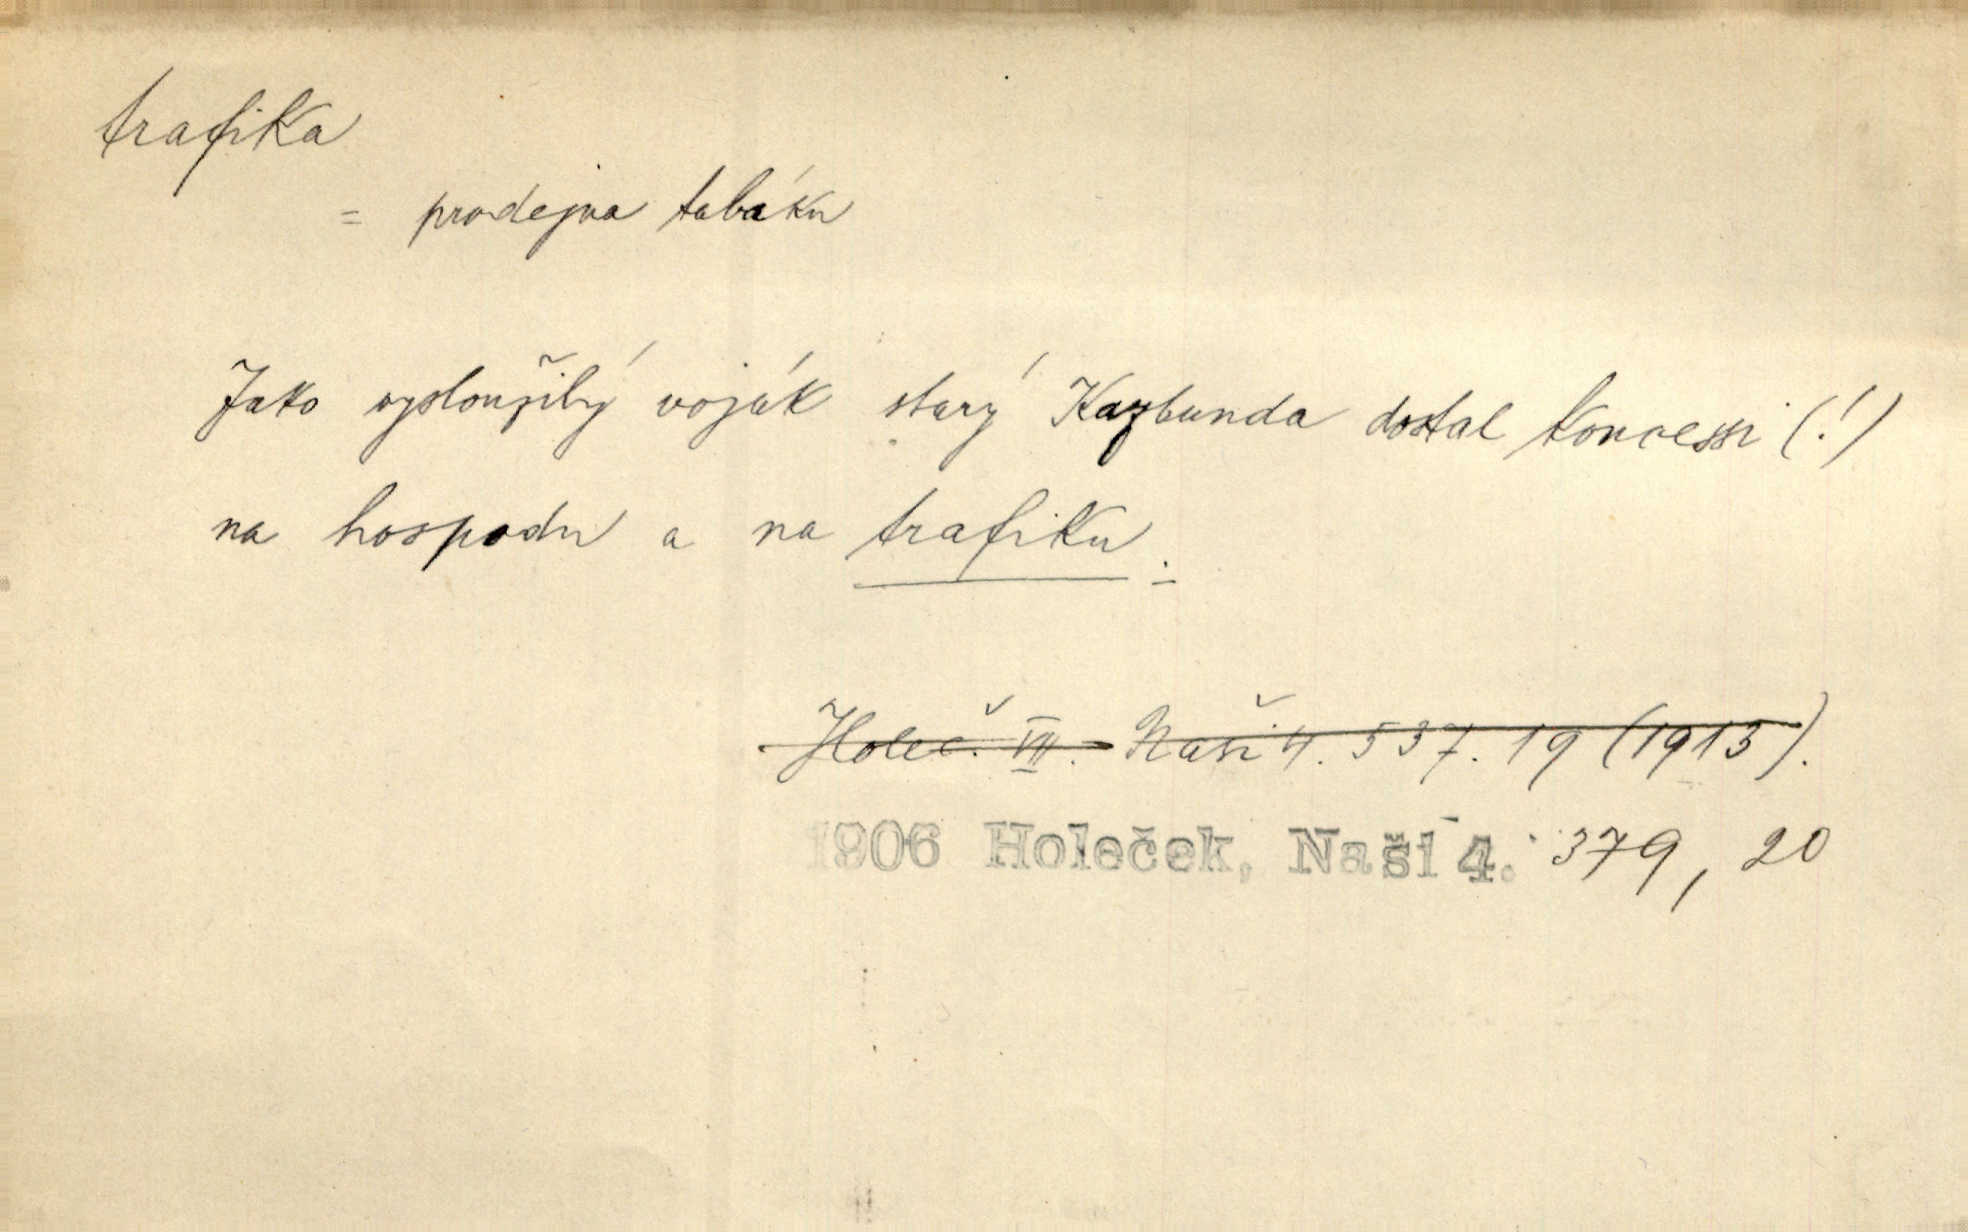 trafika
= prodejna tabáku
Jako vysloužilý voják starý Kazbunda dostal koncessi (!)
na hospodu a na trafiku.
Holeč. VII. Naši 4. 537. 19 (1913).
1906 Holeček, Naši 4. 379, 20